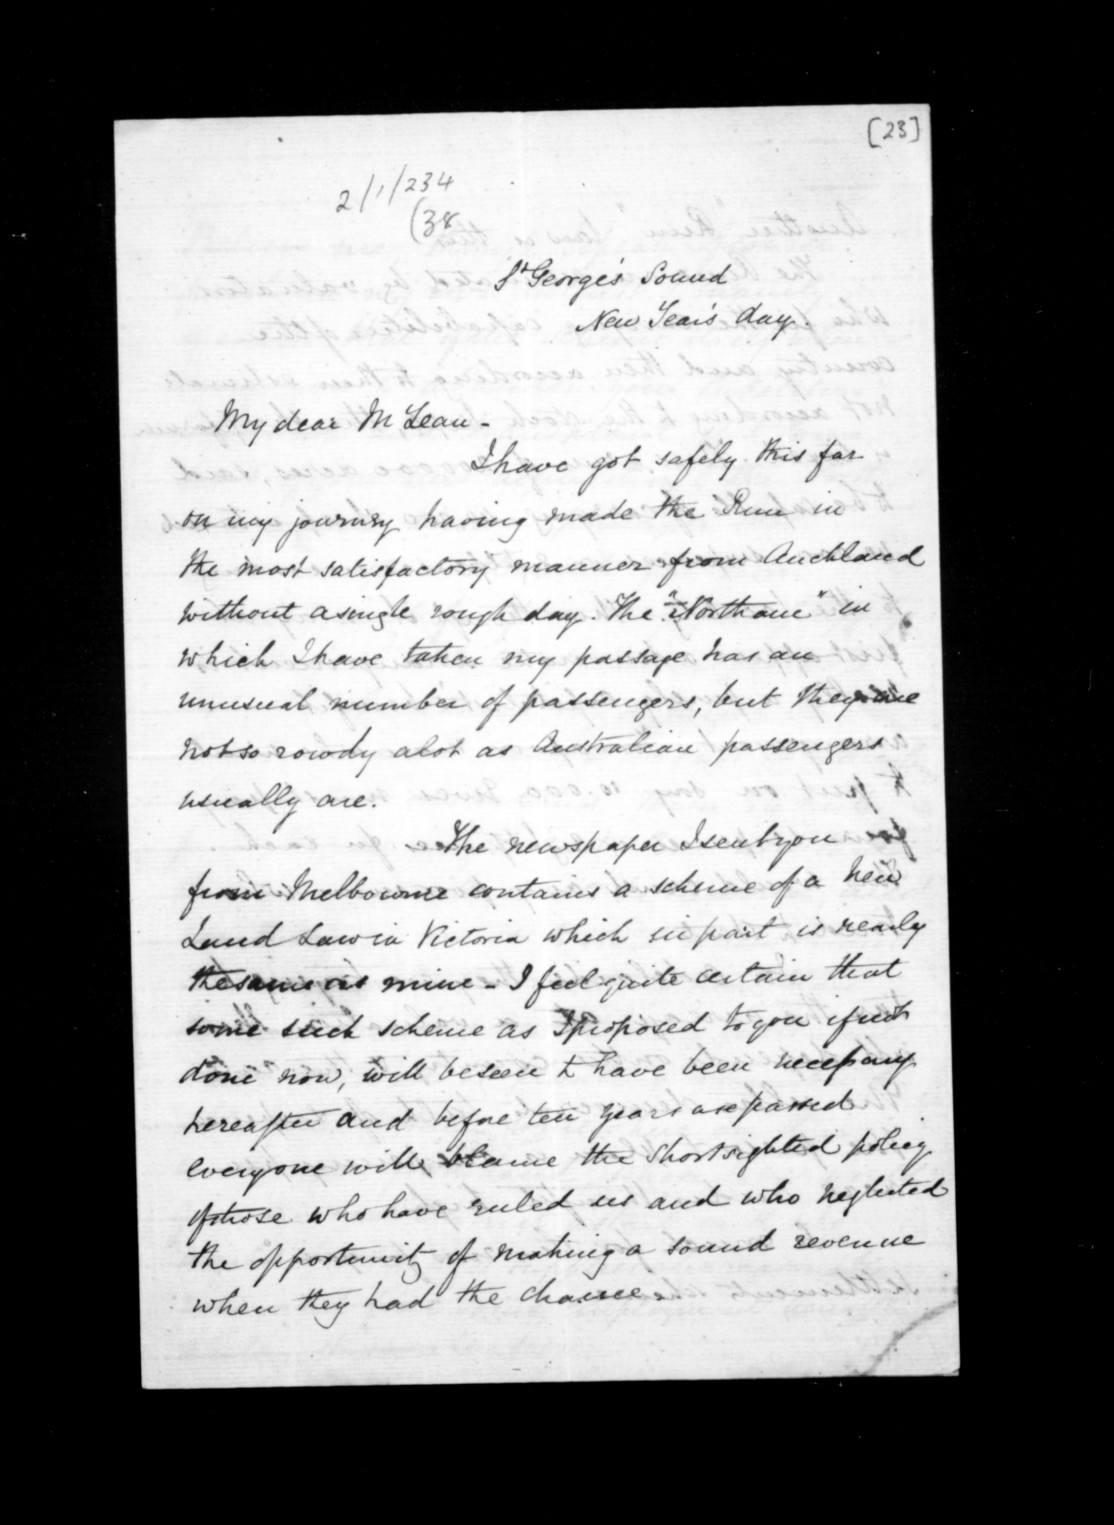 [23]
2/1/234
(38
St George's Sound
New Year's day.
My dear McLean -
I have got safely this far
on my journey having made the Run in
the most satisfactory manner from Auckland
without a single rough day. The "Northam" in
which I have taken my passage has an
unusual number of passengers, but they are
not so rowdy a lot as Australian passengers
usually are.
The newspaper I sent you
from Melbourne contains a scheme of a New
Land Law in Victoria which in part is nearly
the same as mine - I feel quite certain that
some such scheme as I proposed to you if not
done now, will be seen to have been necessary
hereafter and before ten years are passed
everyone will blame the shortsighted policy
of those who have ruled us and who neglected
the opportunity of making a sound revenue
when they had the chance.